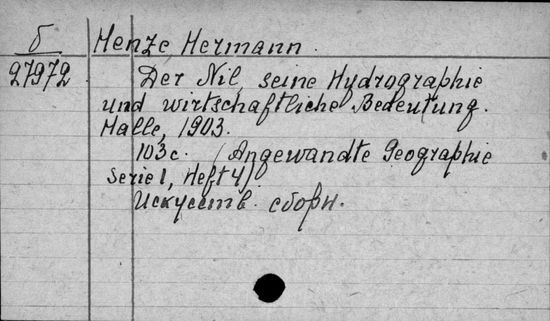 б
27972
Henze Hermann.
Der Nil, seine Hydrographie
und wirtschaftliche Bedeutung.
Halle, 1903.
103с. (Angewandte Geographie
Serie 1, Heft 4)
Искусств. сборн.